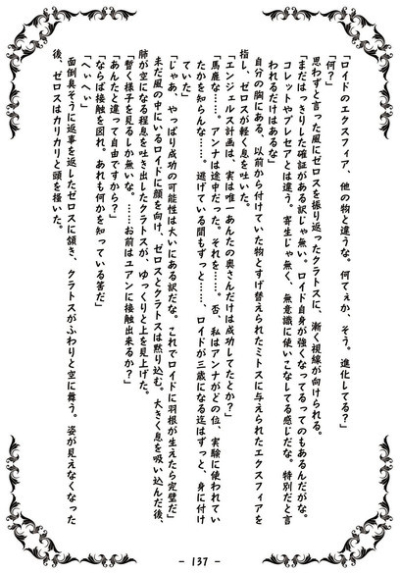 「ロイドのエクスフィア、他の物と違うな。何てぇか、そう。進化してる？」
「何？」
思わずと言った風にゼロスを振り返ったクラトスに、漸く視線が向けられる。
「まだはっきりした確証がある訳じゃ無い。ロイド自身が強くなってるってのもあるんだがな。
コレットやプレセアとは違う。寄生じゃ無く、無意識に使いこなしてる感じだな。特別だと言
われるだけはあるな」
自分の胸にある、以前から付けていた物とすげ替えられたミトスに与えられたエクスフィアを
指し、ゼロスが軽く息を吐いた。
「エンジェルス計画は、実は唯一あんたの奥さんだけは成功してたとか？」
「馬鹿な……。アンナは途中だった。それを……。否、私はアンナがどの位、実験に使われてい
たかを知らんな……。逃げている間もずっと……、ロイドが三歳になる迄はずっと、身に付け
ていた」
「じゃあ、やっぱり成功の可能性は大いにある訳だな。これでロイドに羽根が生えたら完璧だ」
未だ風の中にいるロイドに顔を向け、ゼロスとクラトスは黙り込む。大きく息を吸い込んだ後、
肺が空になる程息を吐き出したクラトスが、ゆっくりと上を見上げた。
「暫く様子を見るしか無いな。……お前はユアンに接触出来るか？」
「あんたと違って自由ですから？」
「ならば接触を図れ。あれも何かを知っている筈だ」
「へぃへぃ」
面倒臭そうに返事を返したゼロスに頷き、クラトスがふわりと空に舞う。姿が見えなくなった
後、ゼロスはカリカリと頭を掻いた。
- 137 -